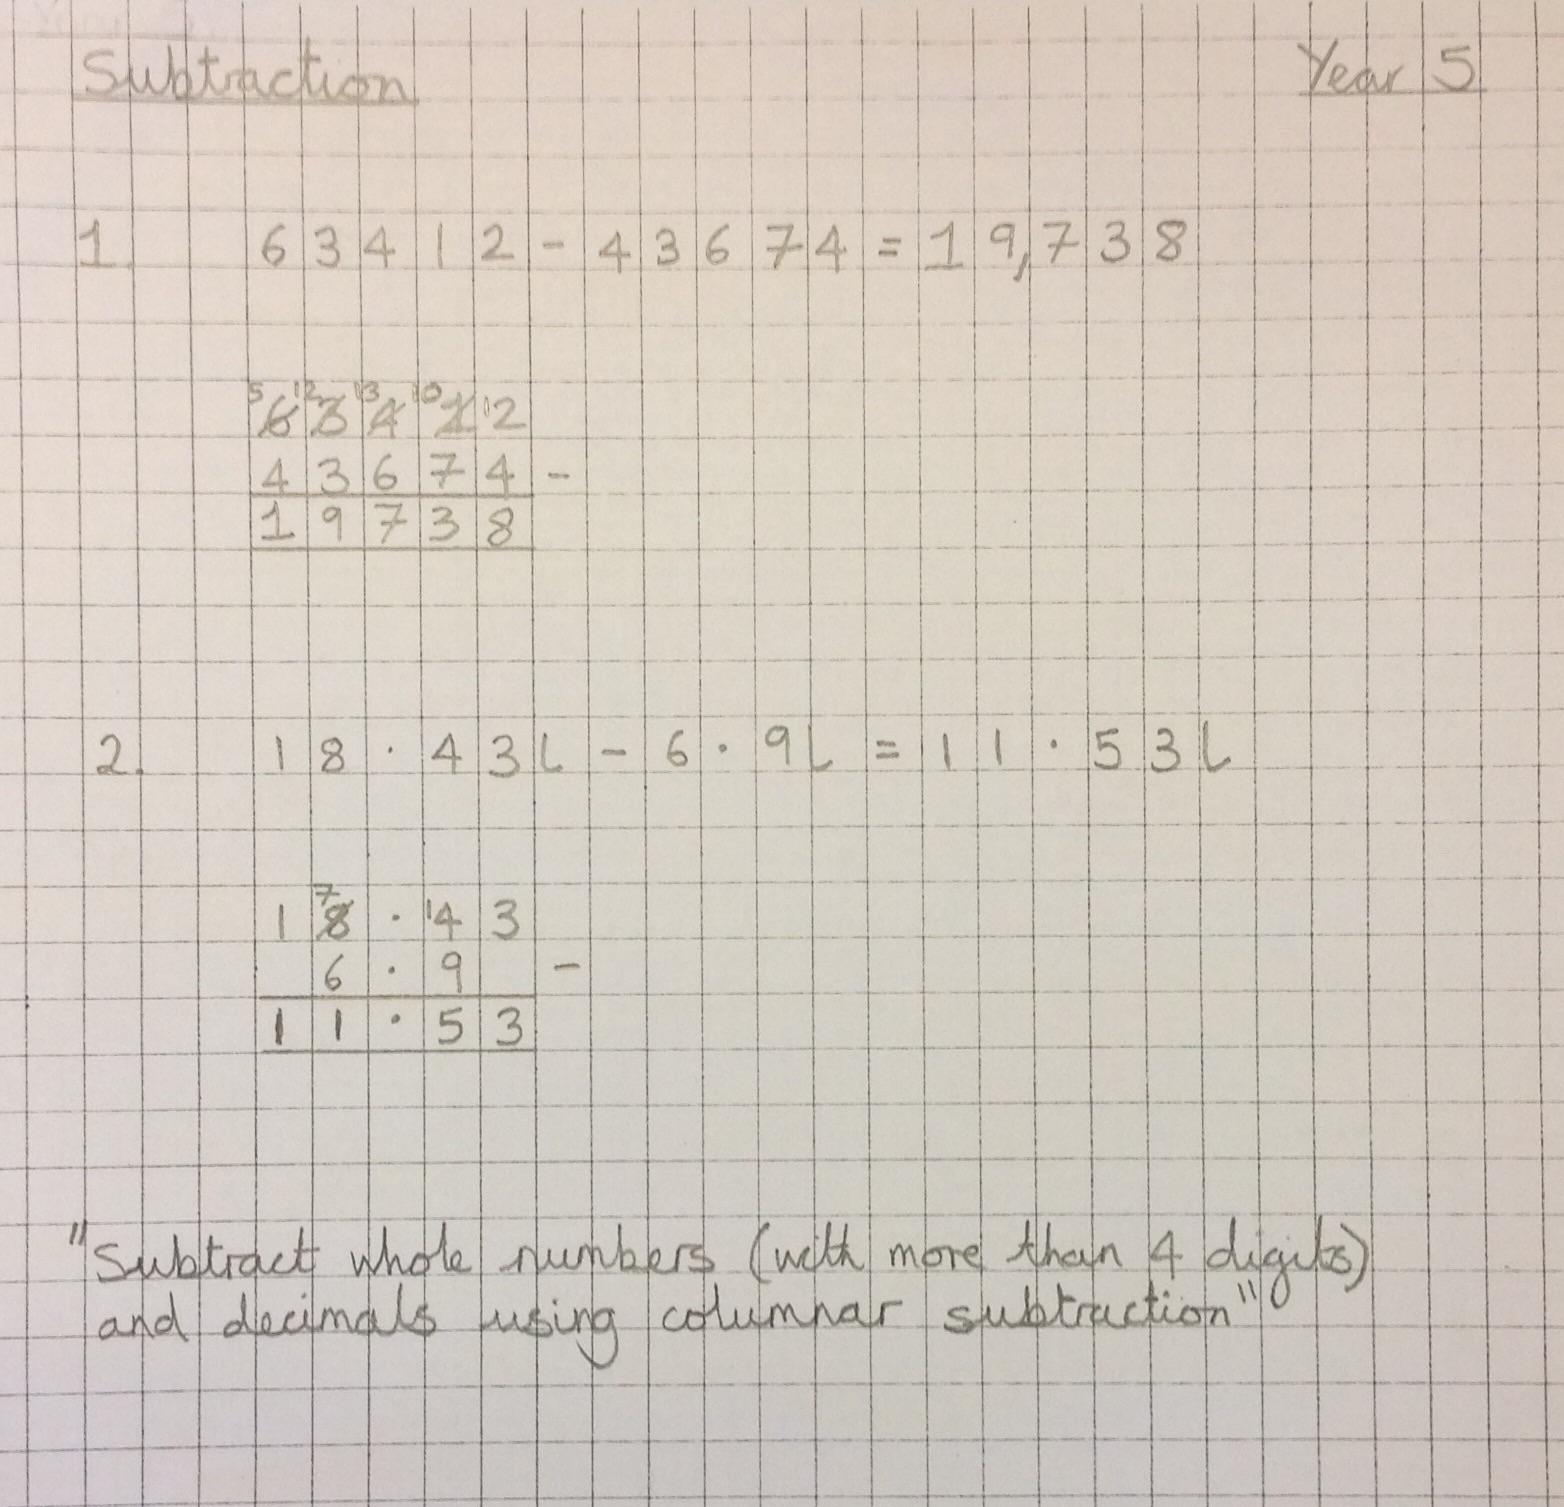 Subtraction Year 5
1. 63412 - 43674 = 19,738
5 12 13 10 1
6 3 4 1 2
4 3 6 7 4 -
1 9 7 3 8
2. 18.43l - 6.9l = 11.53l
7 1
1 8 . 4 3
6 . 9 -
1 1 . 5 3
"Subtract whole numbers (with more than 4 digits)
and decimals using columnar subtraction"